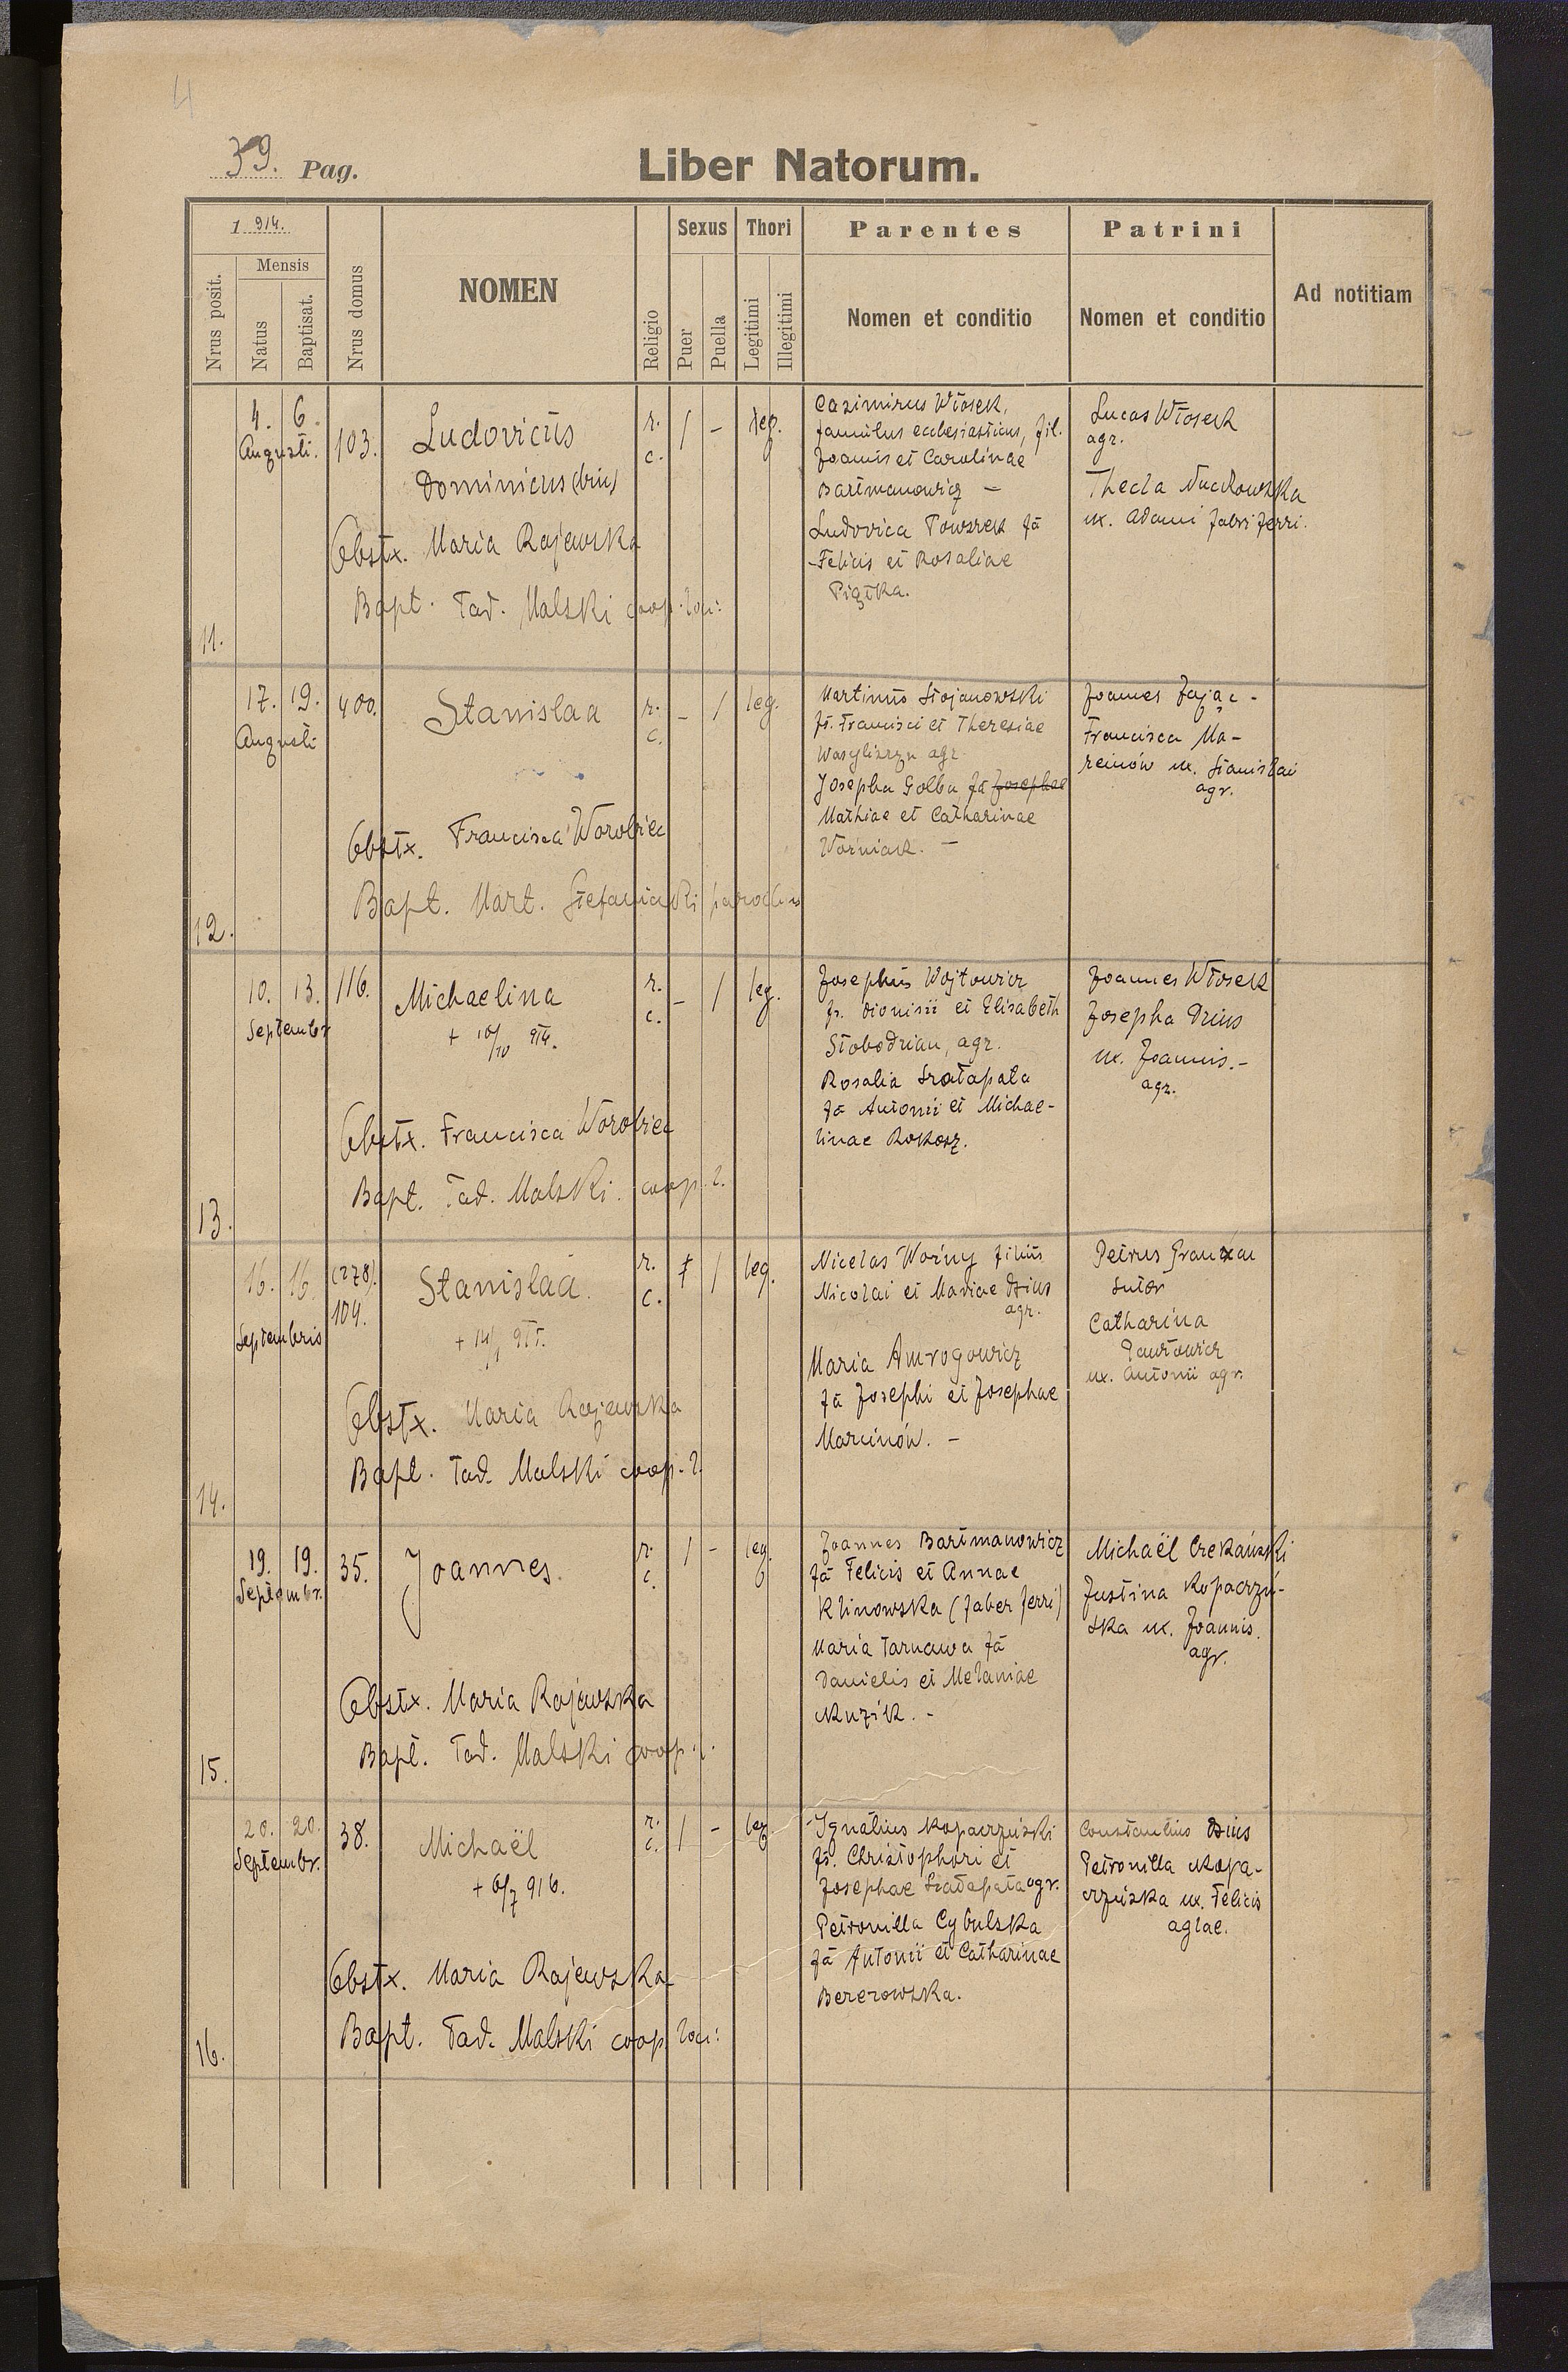 4
39. Pag.
Liber Natorum.
1 914.
Mensis
Nrus posit.
Natus
Baptisat.
Nrus domus
NOMEN
Religio
Sexus
Puer
Puella
Thori
Legitimi
Illegitimi
Parentes
Nomen et conditio
Patrini
Nomen et conditio
Ad notitiam
11.
4. 6.
Augusti.
103.
Ludovicus
Dominicus (bin)
r.
c.
/ - leg.
Obstx. Maria Rajewska
Bapt. Tad. Malski coop. loci:
Casimirus Włosek,
famulus ecclesiasticus, fil.
Joannis et Carolinae
Bartmanowicz -
Ludovica Towarek fa
Felicis et Rosaliae
Piątka.
Lucas Włosek
agr.
Thecla
ux. Adami fabri ferri.
12.
17. 19.
Augusti
400.
Stanislaa
r.
c.
- / leg.
Obstx. Francisca Worobiec
Bapt. Mart. Stefanicki parochus
Martinus Stojanowski
fs. Francisci et Theresiae
agr.
Josepha Golba fa Josephae
Mathiae et Catharinae
Woźniak. -
Joannes Zając -
Francisca Ma-
rcinów ux. Stanislai
agr.
13.
10. 13.
Septembr
116.
Michaelina
+ 10/10 914.
r.
c.
- / leg.
Obstx. Francisca Worobiec
Bapt. Tad. Malski. coop. l.
Josephus Wojtowicz
fs. Dionisii et Elisabeth
Słobodzian, agr.
Rosalia Szatapata
fa Antonii et Michae-
linae Rokosz.
Joannes Włosek
Josepha Dzius
ux. Joannis.-
agr.
14.
16. 16.
Septembris
(278).
104.
Stanislaa.
+ 14/1 915.
r.
c.
/ leg.
Obstx. Maria Rajewska
Bapt. Tad. Malski coop. l.
Nicolas Woźny filius
Nicolai et Mariae Dzius
agr.
Maria Amrogowicz
fa Josephi et Josephae
Marcinów. -
Petrus
sutor
Catharina
Pawłowicz
ux. Antonii agr.
15.
19. 19.
Septembr.
35.
Joannes.
r.
c.
/ - leg.
Obstx. Maria Rajewska
Bapt. Tad. Malski coop. l.
Joannes Bartmanowicz
fa Felicis et Annae
Klinowska (faber ferri)
Maria Tarnawa fa
Danielis et Melaniae
Kuzik. -
Michaël Czekański
Justina Kopaczyń-
ska ux. Joannis.
agr.
16.
20. 20.
Septembr.
38.
Michaël
+ 6/7 916.
r.
c.
/ - leg.
Obstx. Maria Rajewska
Bapt. Tad. Malski coop loci:
Ignatius Kopaczyński
fs. Christophori et
Josephae Szatapata agr.
Petronilla Cybulska
fa Antonii et Catharinae
Berezowska.
Constantius Dzius
Petronilla Kopa-
czyńska ux. Felicis
aglae.